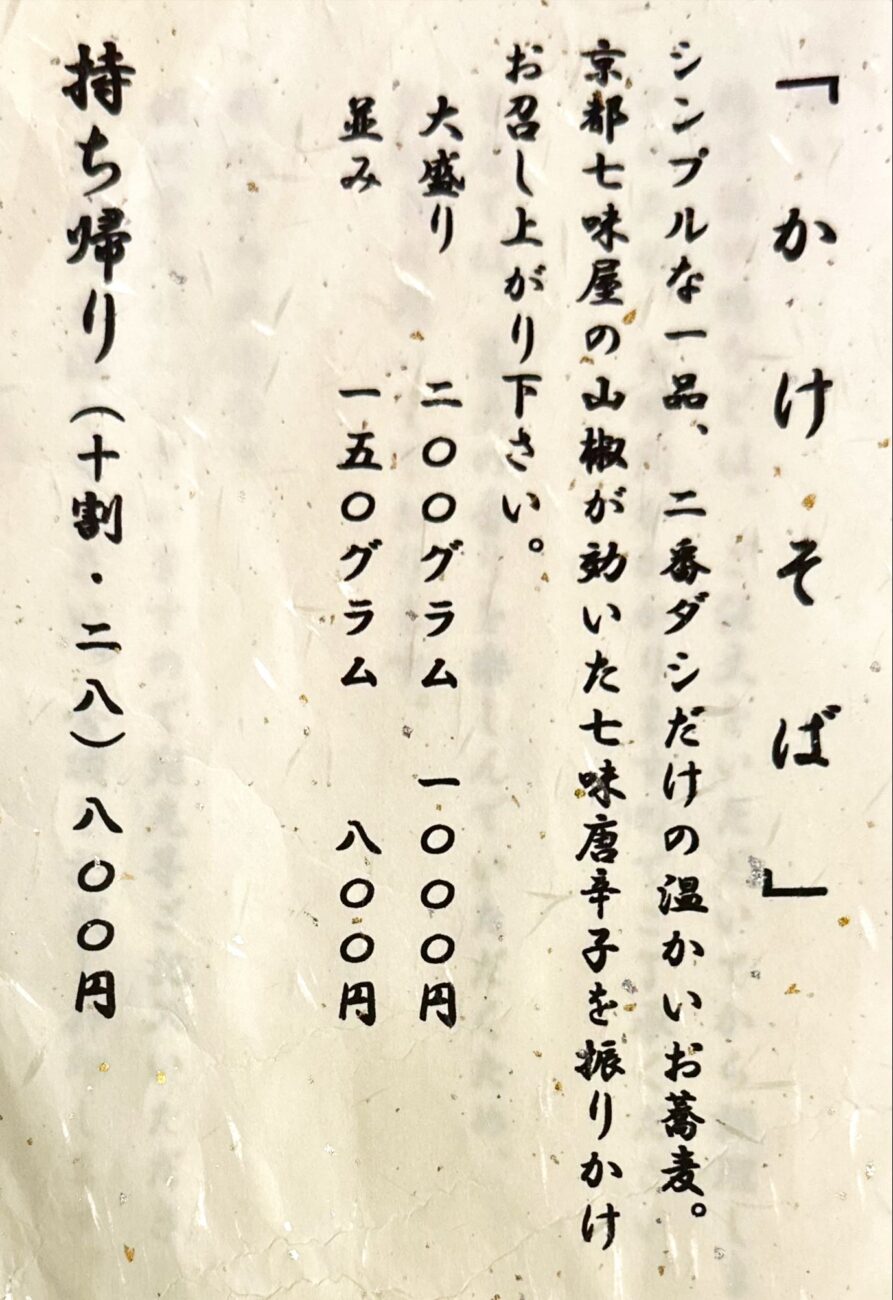 「かけそば」
シンプルな一品、二番ダシだけの温かいお蕎麦。
京都七味屋の山椒が効いた七味唐辛子を振りかけ
お召し上がり下さい。
大盛り 二〇〇グラム 一〇〇〇円
並み 一五〇グラム 八〇〇円
持ち帰り（十割・二八）八〇〇円